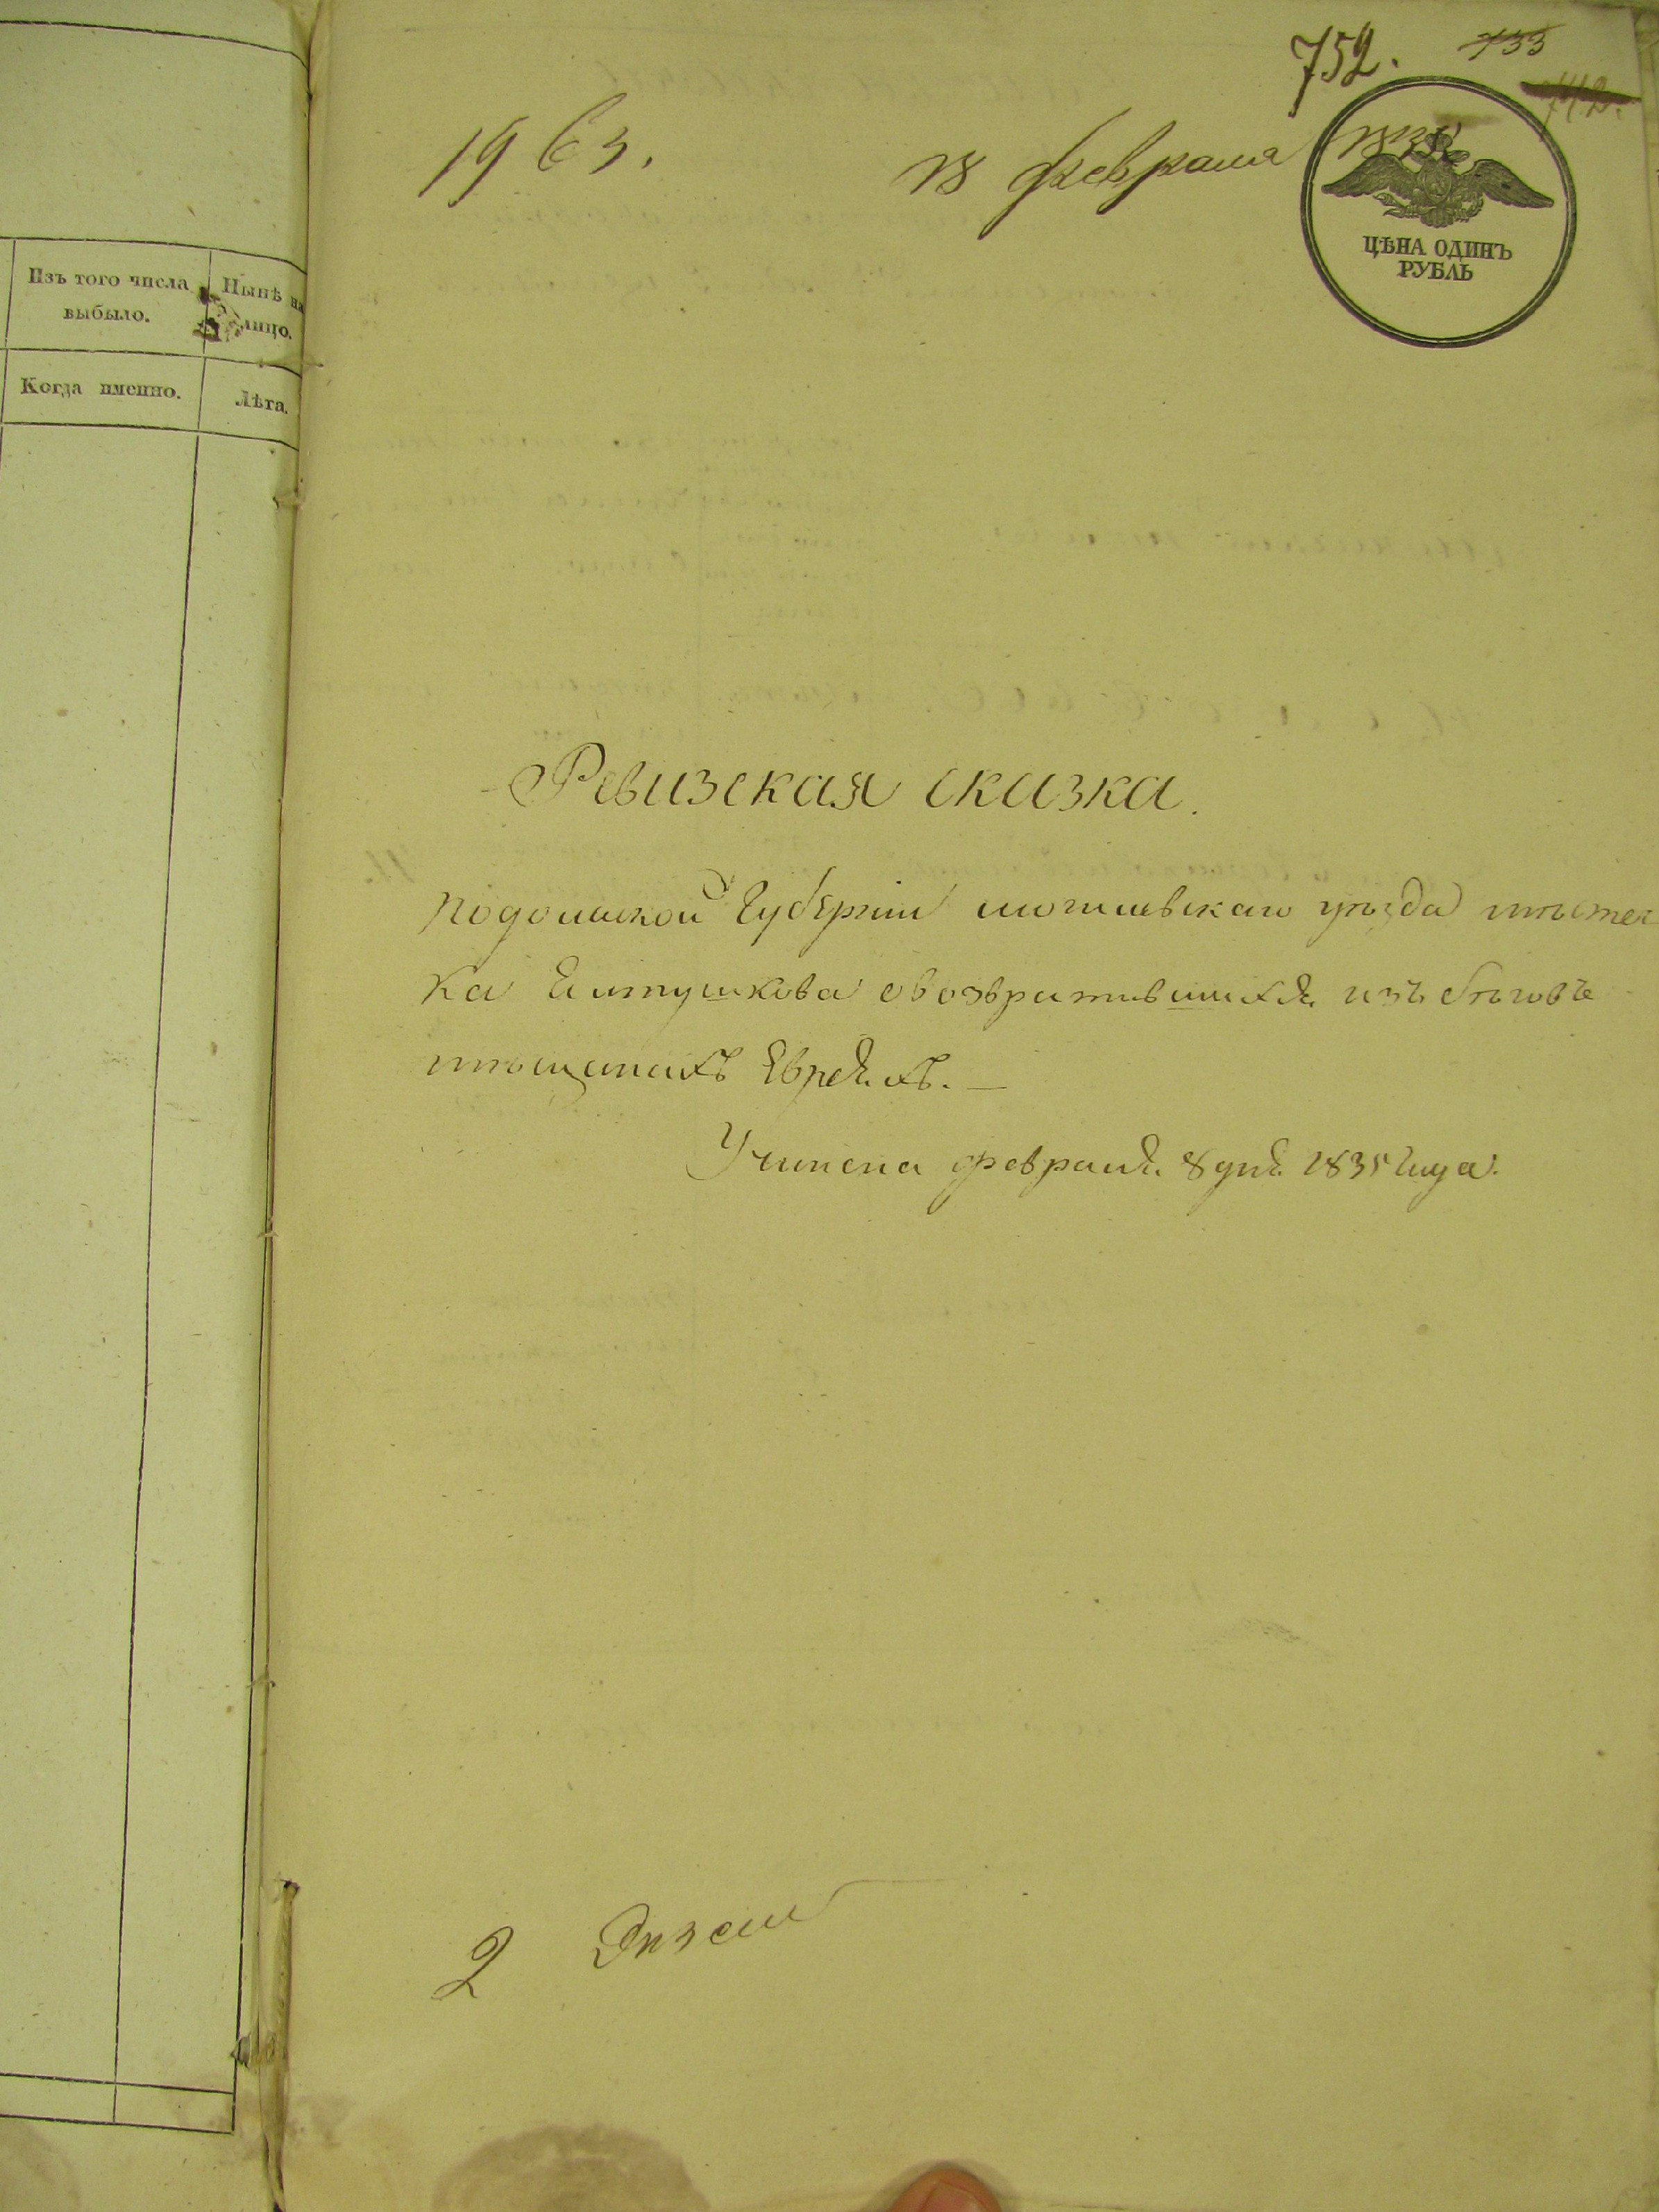 Изъ того числа
выбыло.
Нынѣ на
лицо.
Когда именно.
Лѣта.
752. 733
742.
1963. 18 февраля 1835
ЦѢНА ОДИНЪ
РУБЛЬ
Ревизская сказка.
Подольской Губерніи могилевскаго уѣзда мѣстеч
ка Елтушкова о возвратившихся изъ бѣговъ
мѣщанахъ Евреяхъ. —
Учинена февраля 8 дня 1835 года.
2 Экзем